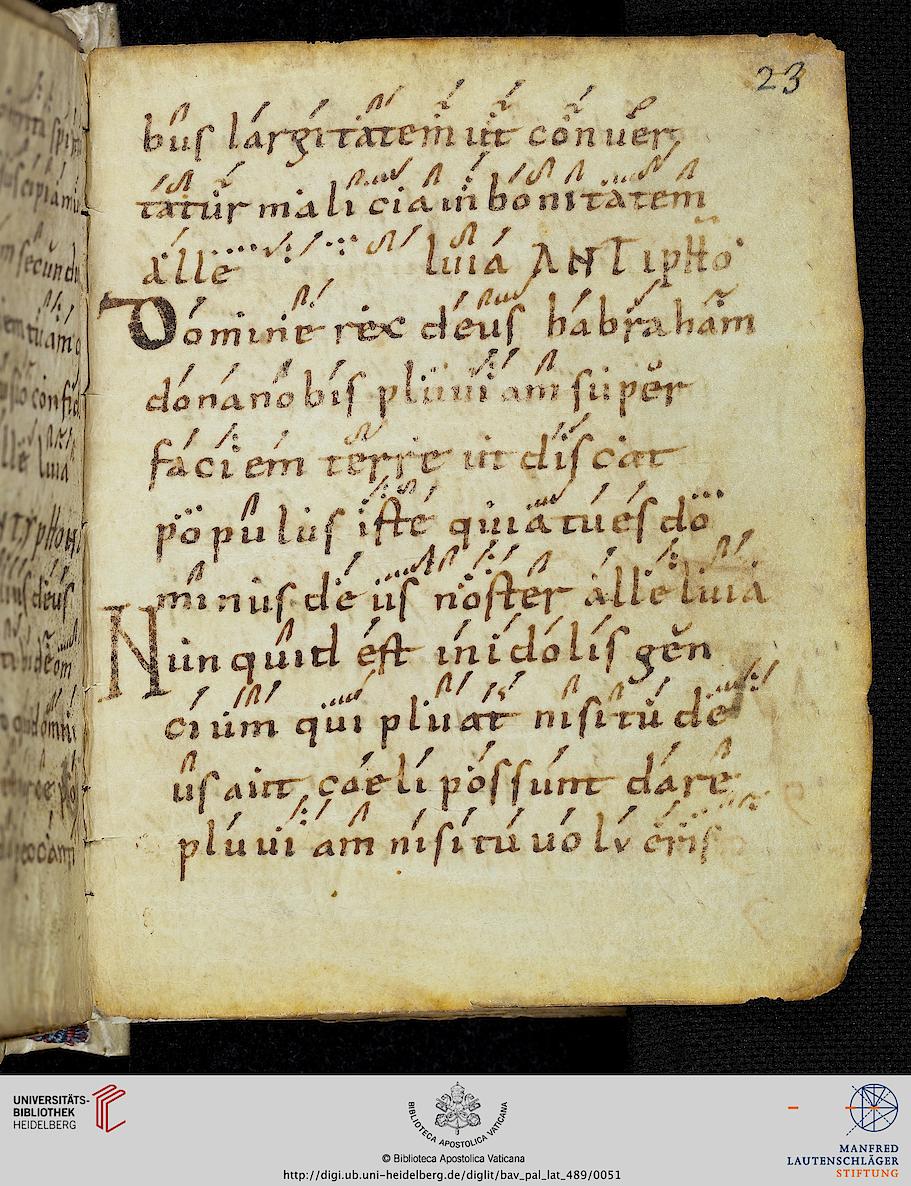 23
bus largitatem ut conuer
tatur malicia in bonitatem
alle luia ANTIpho
Domine rex deus habraham
dona nobis pluuiam super
faciem terre ut discat
populus iste quia tu es do
minus deus noster alleluia
Nunquid est in idolis gen
cium qui pluat nisi tu de
us aut caeli possunt dare
pluuiam nisi tu uolueris
UNIVERSITÄTS-
BIBLIOTHEK
HEIDELBERG
BIBLIOTECA APOSTOLICA VATICANA
© Biblioteca Apostolica Vaticana
http://digi.ub.uni-heidelberg.de/diglit/bav_pal_lat_489/0051
MANFRED
LAUTENSCHLÄGER
STIFTUNG